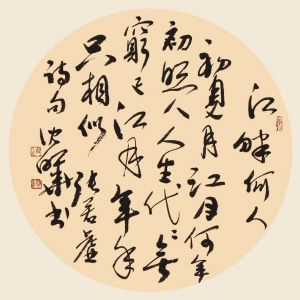 江畔何人
初見月江月何年
初照人人生代代無
窮已江月年年
只相似張若虛
詩句沈書